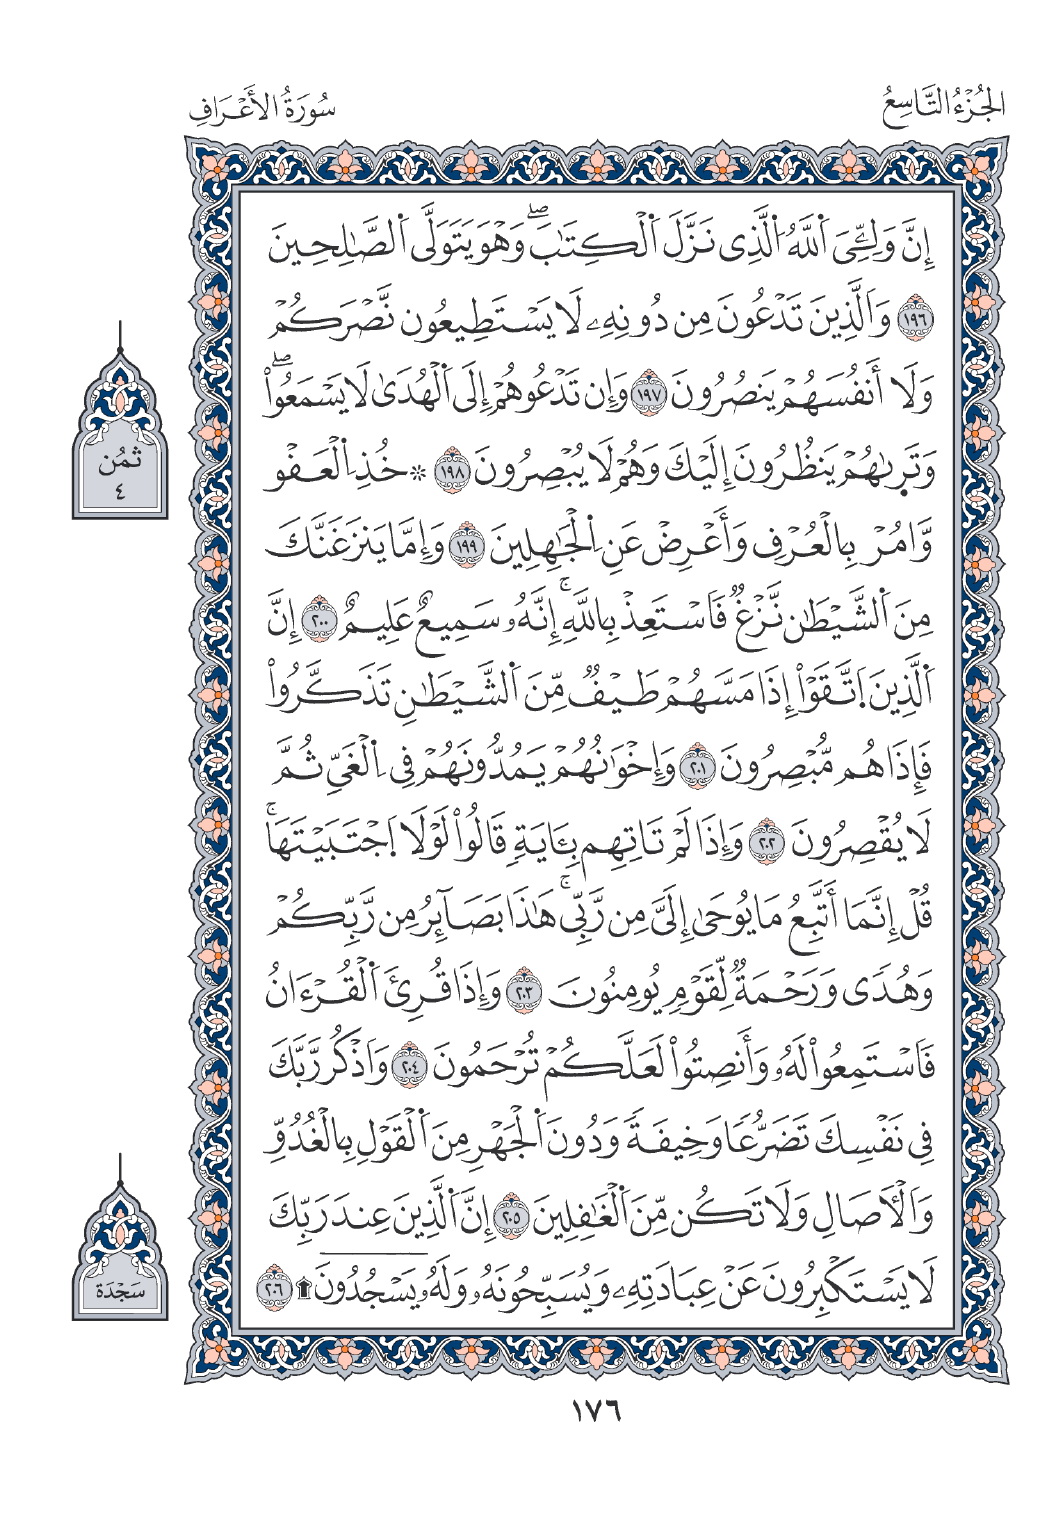 الجُزْءُ التَّاسِعُ
سُورَةُ الأَعْرَافِ
إِنَّ وَلِـِّۧيَ اَ۬للَّهُ اُ۬لَّذِى نَزَّلَ اَ۬لْكِتَٰبَۖ وَهْوَ يَتَوَلَّى اَ۬لصَّٰلِحِينَ
١٩٦ وَاَلَّذِينَ تَدْعُونَ مِن دُونِهِۦ لَا يَسْتَطِيعُون نَّصْرَكُمْ
وَلَا أَنفُسَهُمْ يَنصُرُونَ ١٩٧ وَإِن تَدْعُوهُمْ إِلَى اَ۬لْهُدَىٰ لَا يَسْمَعُواْۖ
وَتَرٜىٰهُمْ يَنظُرُونَ إِلَيْكَ وَهُمْ لَا يُبْصِرُونَ ١٩٨ ۞ خُذِ اِ۬لْعَفْو
وَّامُرْ بِالْعُرْفِ وَأَعْرِضْ عَنِ اِ۬لْجَٰهِلِينَ ١٩٩ وَإِمَّا يَنزَغَنَّكَ
مِنَ اَ۬لشَّيْطَٰن نَّزْغٌ فَاسْتَعِذْ بِاللَّهِۚ إِنَّهُۥ سَمِيعٌ عَلِيمٌ ٢٠٠ إِنَّ
اَ۬لَّذِينَ اَ۪تَّقَوْاْ إِذَا مَسَّهُمْ طَيْفٌ مِّنَ اَ۬لشَّيْطَٰنِ تَذَكَّرُواْ
فَإِذَا هُم مُّبْصِرُونَ ٢٠١ وَإِخْوَٰنُهُمْ يَمُدُّونَهُمْ فِى اِ۬لْغَيِّ ثُمَّ
لَا يُقْصِرُونَ ٢٠٢ وَإِذَا لَمْ تَاتِهِم بِـَٔايَةٍ قَالُواْ لَوْلَا اَ۪جْتَبَيْتَهَاۚ
قُلْ إِنَّمَا أَتَّبِعُ مَا يُوحَىٰ إِلَىَّ مِن رَّبِّىۚ هَٰذَا بَصَآئِرُ مِن رَّبِّكُمْ
وَهُدًى وَرَحْمَةٌ لِّقَوْمٍ يُومِنُونَ ٢٠٣ وَإِذَا قُرِئَ اَ۬لْقُرْءَانُ
فَاسْتَمِعُواْ لَهُۥ وَأَنصِتُواْ لَعَلَّكُمْ تُرْحَمُونَ ٢٠٤ وَاذْكُر رَّبَّكَ
فِى نَفْسِكَ تَضَرُّعًا وَخِيفَةً وَدُونَ اَ۬لْجَهْرِ مِنَ اَ۬لْقَوْلِ بِالْغُدُوِّ
وَالْأٓصَالِ وَلَا تَكُن مِّنَ اَ۬لْغَٰفِلِينَ ٢٠٥ إِنَّ اَ۬لَّذِينَ عِندَ رَبِّكَ
لَا يَسْتَكْبِرُونَ عَنْ عِبَادَتِهِۦ وَيُسَبِّحُونَهُۥ وَلَهُۥ يَسْجُدُونَ ۩ ٢٠٦
ثُمُن
٤
سَجْدَة
١٧٦